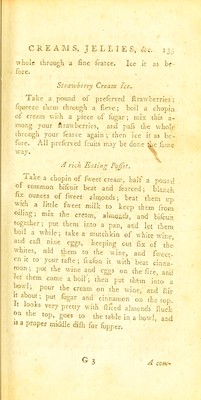 CREAMS, JELLIES, &c. 135
whole through a fine searce. Ice it as be-
fore.
Strawberry Cream Ice.
Take a pound of preserved strawberries:
squeeze them through a sieve; boil a chopin
of cream with a piece of sugar; mix this a-
mong your strawberries, and pass the whole
through your searce again; then ice it as be-
fore. All preserved fruits may be done the same
way.
A rich Eating Posset.
Take a chopin of sweet cream, half a pound
of common biscuit beat and searced; blanch
six ounces of sweet almonds; beat them up
with a little sweet milk to keep them from
oiling; mix the cream, almonds, and biscuit
together; put them into a pan, and let them
boil a while; take a mutchkin of white wine,
and cast nine eggs, keeping out six of the
whites, add them to the wine, and sweet-
en it to your taste; season it with beat cinna-
mon; put the wine and eggs on the fire, and
let them come a boil; then put them into a
bowl; pour the cream on the wine, and stir
it about; put sugar and cinnamon on the top.
It looks very pretty with sliced almonds stuck
on the top, goes to the table in a bowl, and
is a proper middle dish for supper.
G 3
A com-